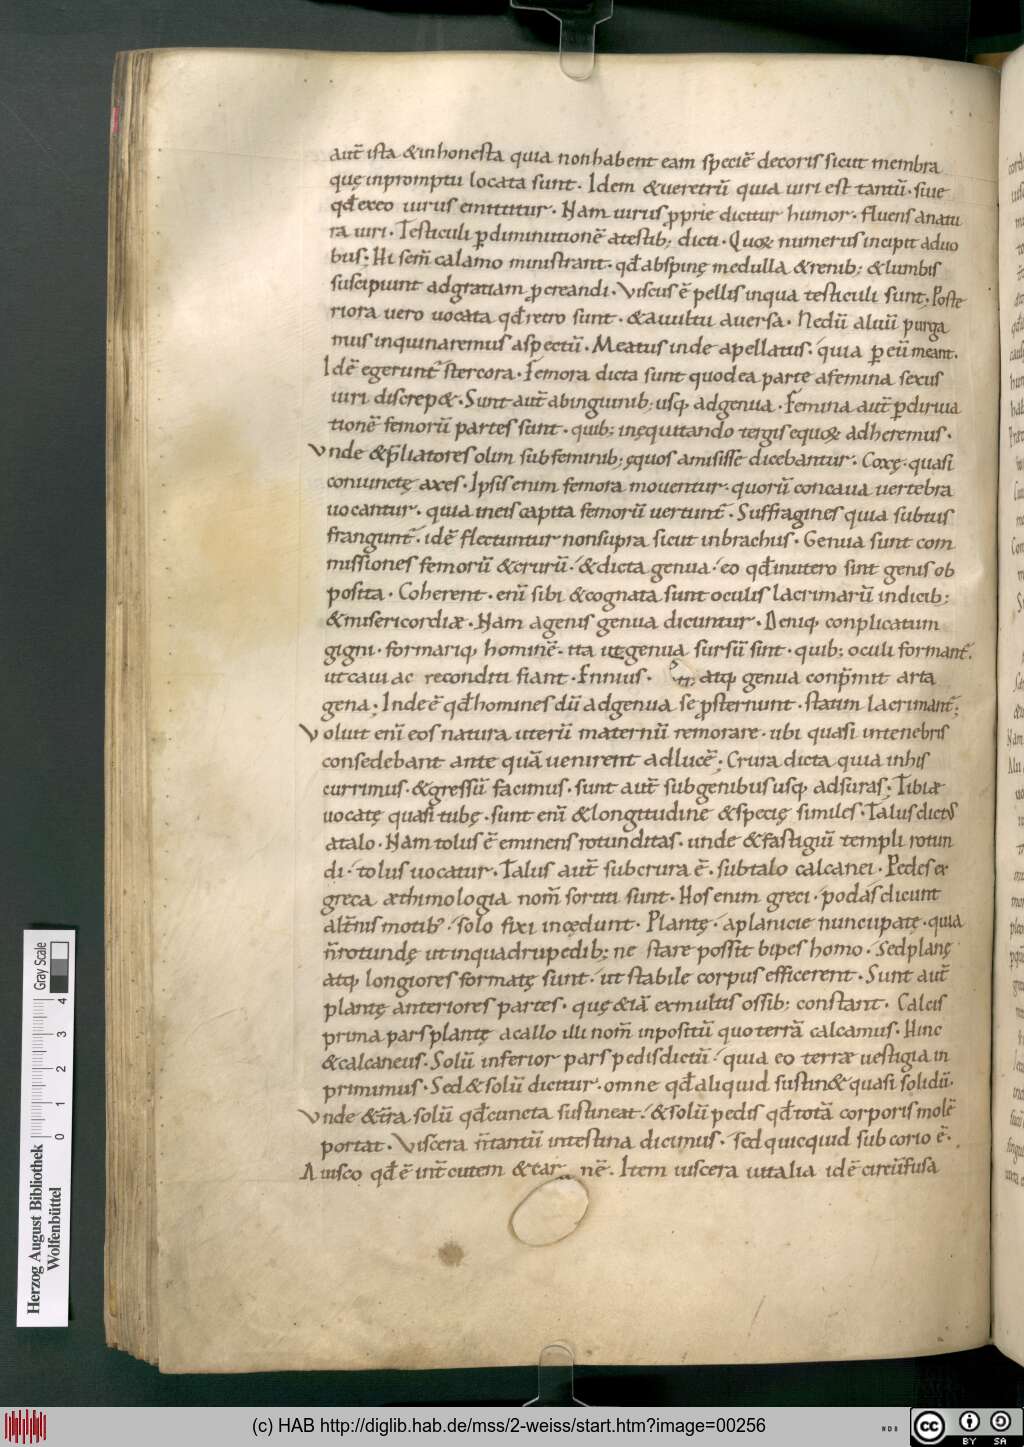 aut̄ ista &inhonesta quia nonhabent eam speciē decoris sicut membra
quę inpromptu locata sunt. Idem &ueretrū quia uiri est tantū. siue
qd̄ exeo uirus emittitur. Nam uirus p̱prie dicitur humor. fluens anatu
ra uiri. Testiculi p̱diminutionē atestib; dicti. Quoꝝ numerus incipit aduo
bus; Hi sem̄ calamo ministrant. qd̄ abspinę medulla &renib; &lumbis
suscipiunt adgratiam p̱creandi. Viscus ē pellis inqua testiculi sunt. Poste
riora uero uocata qd̄ retro sunt. &auultu auersa. Nedū aluū purga
mus inquinaremus aspectū. Meatus inde apellatus. quia p̱ eū meant.
Idē egerunt̄ stercora. Femora dicta sunt quodea parte afemina sexus
uiri discrep&. Sunt aut̄ abinguinib; usq; adgenua. Femina aut̄ p̱diriua
tionē femorū partes sunt. quib; inęquitando tergis equoꝝ adheremus.
Vnde &p̄liatores olim subfeminib; ęquos amisisse dicebantur. Coxę. quasi
coniunctę axes. Ipsis enim femora mouentur. quorū concaua uertebra
uocantur. quia ineis capita femorū uertunt̄. Suffragines quia subtus
frangunt̄. idē flectuntur nonsupra sicut inbrachus. Genua sunt com
missiones femorū &crurū. &dicta genua. eo qd̄ inutero sint genis ob
posita. Coherent. enī sibi &cognata sunt oculis lacrimarū indicib;
&misericordiæ. Nam agenis genua dicuntur. Deniq; conplicatum
gigni. formariq; hominē. ita ut genua sursū sint. quib; oculi formant̄.
ut caui ac reconditi fiant. Ennius. atq; genua conp̄mit arta
gena; Inde ē qd̄ homines dū adgenua se p̱sternunt. statim lacrimant̄;
Voluit enī eos natura uterū maternū remorare. ubi quasi intenebris
consedebant ante quā uenirent adlucē; Crura dicta quia inhis
currimus. &gressū facimus. sunt aut̄ subgenibus usq; adsuras. Tibiæ
uocatę quasi tubę. sunt enī &longitudine &specię similes. Talus dict'
atalo. Nam tolus ē eminens rotunditas. unde &fastigiū templi rotun
di. tolus uocatur. Talus aut̄ subcrura ē. subtalo calcanei. Pedes ex
greca æthimologia nom̄ sortiti sunt. Hos enim greci. podas dicunt
alt̄nis motib'. solo fixi incędunt. Plantę. aplanicie nuncupatę. quia
n̄ rotundę ut inquadrupedib; ne stare possit bipes homo. Sed planę
atq; longiores formatę sunt. ut stabile corpus efficerent. Sunt aut̄
plantę anteriores partes. quę &iā exmultis ossib; constant. Calcis
prima pars plantę acallo illi nom̄ inpositū quo terrā calcamus. Hinc
&calcaneus. Solū inferior pars pedis dictū. quia eo terræ uestigia in
primimus. Sed&solū dicitur. omne qd̄ aliquid sustin& quasi solidū.
Vnde &t̄ra. solū qd̄ cuncta sustineat. &solū pedis qd̄ totā corporis molē
portat. Viscera n̄ tantū intestina dicimus. sed quicquid sub corio ē.
A uisco qd̄ ē int̄ cutem &car nē. Item uiscera uitalia idē circūfusa
Gray Scale
4 3 2 1 0
Herzog August Bibliothek
Wolfenbüttel
(c) HAB http://diglib.hab.de/mss/2-weiss/start.htm?image=00256
cc BY SA